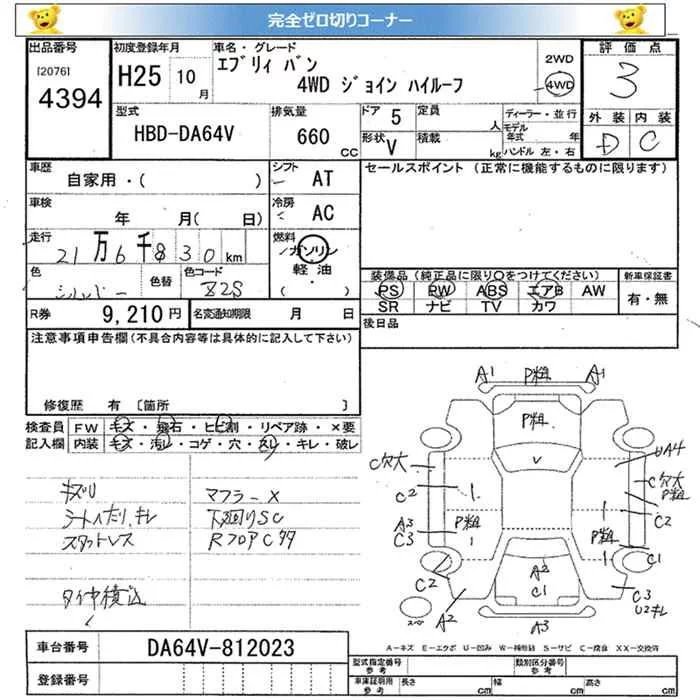 完全ゼロ切りコーナー
出品番号
[2076]
4394
初度登録年月
H25 10月
車名・グレード
エブリィ バン
4WD ジョイン ハイルーフ
2WD
4WD
評価点
3
外装 内装
D C
型式
HBD-DA64V
排気量
660 CC
ドア 5
定員 人
形状 V
積載 kg
ディーラー・並行
モデル年式 年
ハンドル 左・右
車歴
自家用・( )
シフト AT
セールスポイント (正常に機能するものに限ります)
車検
年 月(日)
冷房 AC
走行
21万6千830km
燃料
ガソリン
軽油
( ・ )
色
シルバー
色替
色コード
Z2S
装備品(純正品に限り○をつけてください)
新車保証書
PS PW ABS エアB AW
SR ナビ TV カワ
有・無
R券 9,210円
名変通知期限 月 日
後日品
注意事項申告欄(不具合内容等は具体的に記入して下さい)
修復歴 有 [箇所 ]
検査員記入欄
FW キズ・飛石・ヒビ割・リペア跡・×要
内装 キズ・汚レ・コゲ・穴・スレ・キレ・破レ
キズリ
シートへたり、キレ
スタットレス
タイヤ積込
マフラーX
下廻りSC
RフロアCタタ
A1 P粗 A1
P粗
V
UA4
C欠大
C2
C欠大
P粗
C2
A3
C3
P粗
P粗
C1
C2
A2
A2
C1
C3
U2キレ
スペア
A3
車台番号
DA64V-812023
登録番号
A-キズ E-エクボ U-凹み W-補修跡 S-サビ C-腐食 XX-交換済
型式指定番号 参考
類別区分番号 参考
車庫証明用 参考
長さ cm
幅 cm
高さ cm